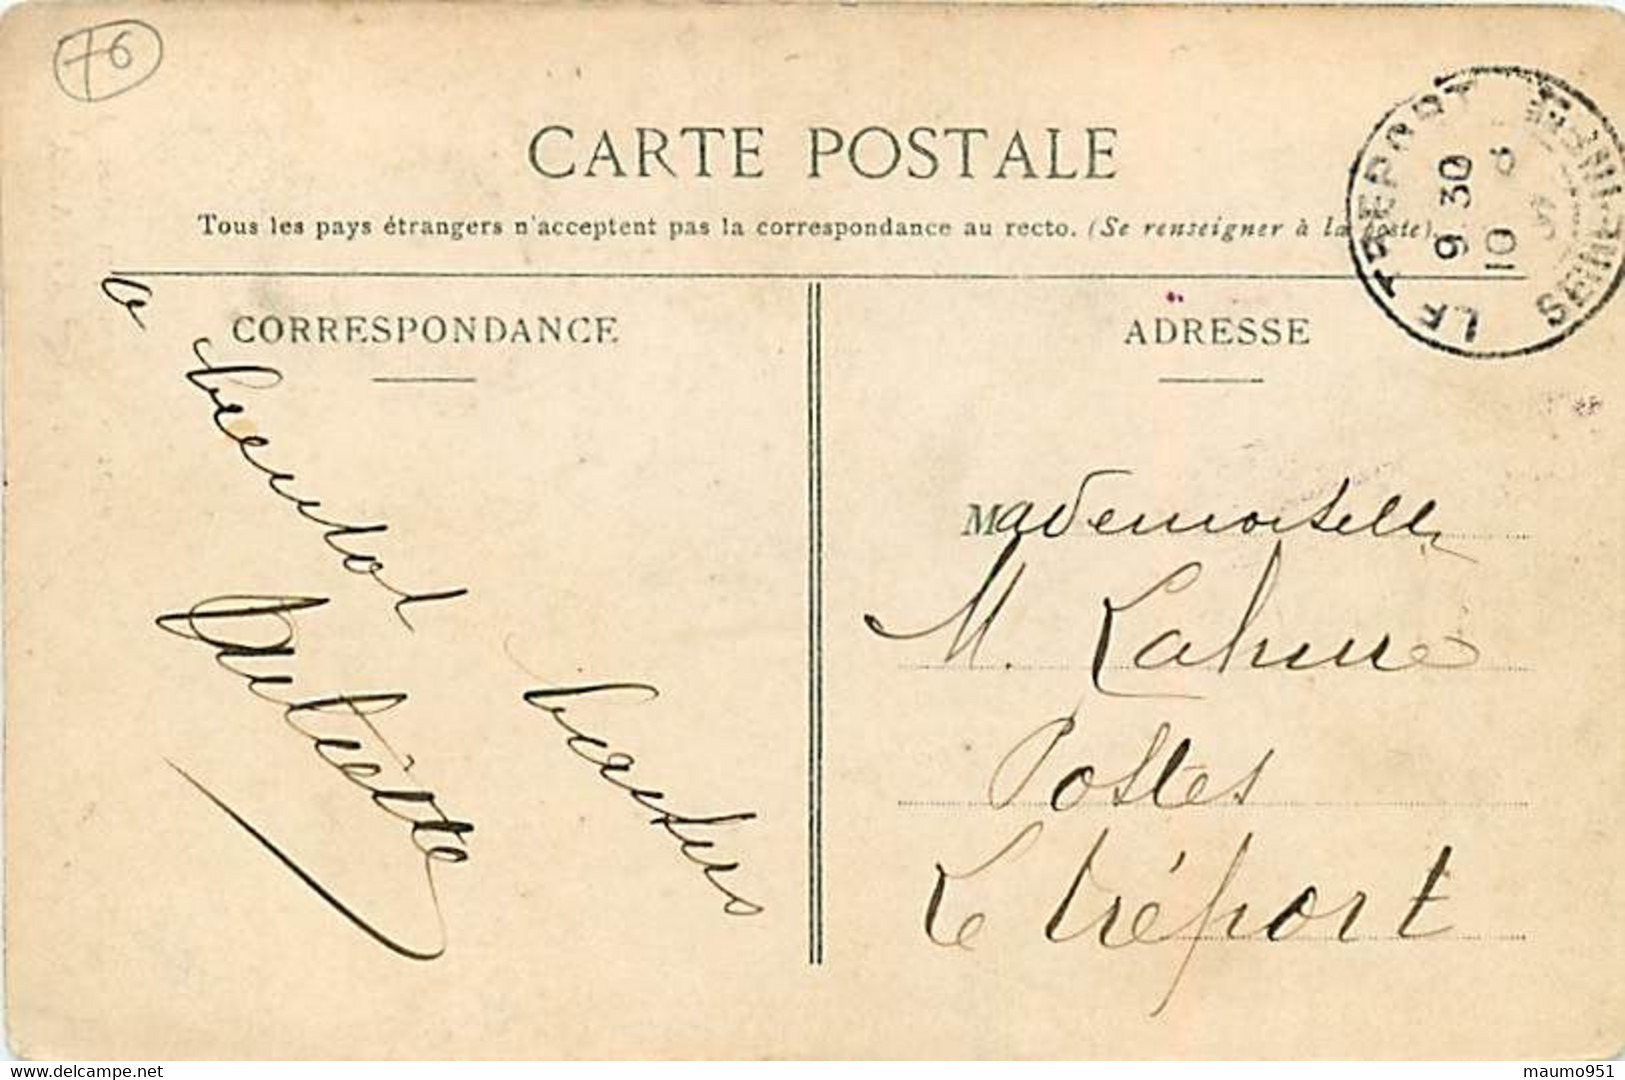 76
CARTE POSTALE
Tous les pays étrangers n'acceptent pas la correspondance au recto. (Se renseigner à la poste).
LE TREPORT
SEINE-INFRE
9 30
10
CORRESPONDANCE
ADRESSE
a
bientot
baisers
Mademoiselle
M. Lahure
Postes
Le tréport
www.delcampe.net
maumo951